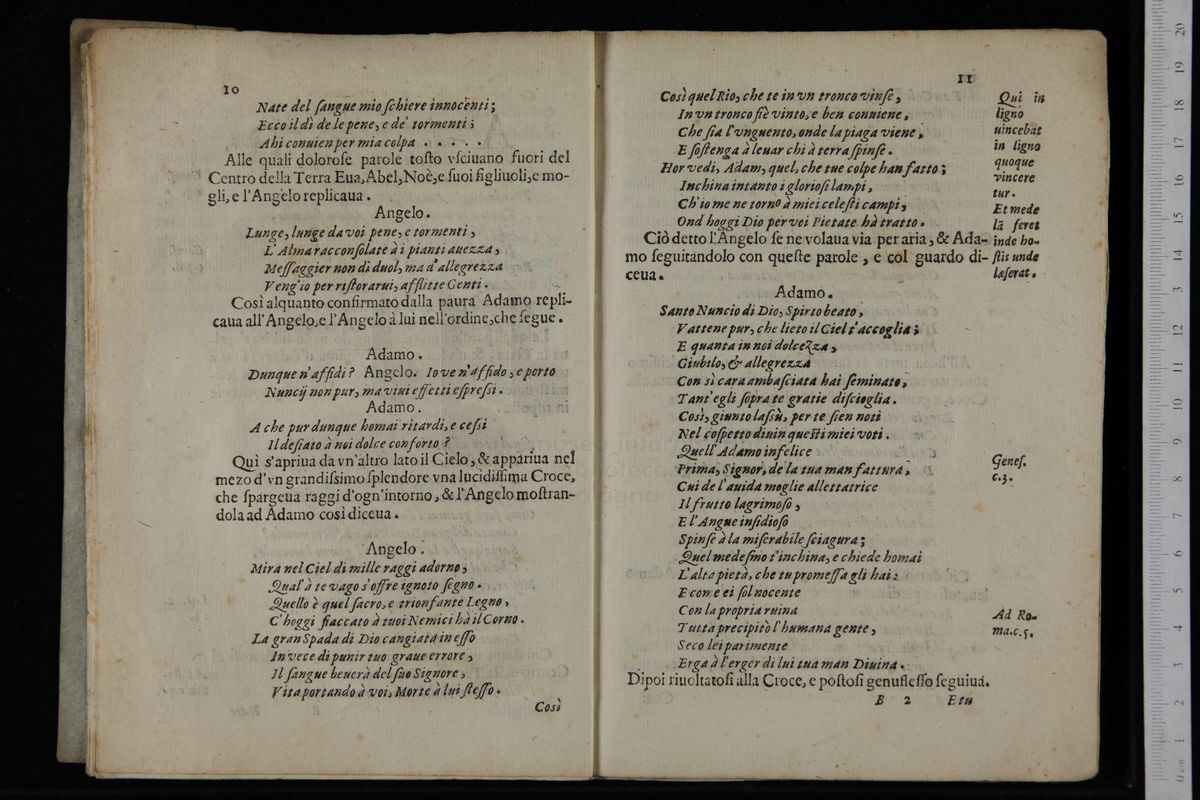 10
Nate del ſangue mio ſchiere innocenti;
Ecco il dì de le pene, e de' tormenti;
Ahi conuien per mia colpa . . . . .
Alle quali doloroſe parole toſto vſciuano fuori del
Centro della Terra Eua, Abel, Noè, e ſuoi figliuoli, e mo-
gli, e l'Angelo replicaua.
Angelo.
Lunge, lunge da voi pene, e tormenti,
L'Alma racconſolate à i pianti auezza,
Meſſaggier non di duol, ma d'allegrezza
Veng'io per riſtorarui, afflitte Genti.
Così alquanto confirmato dalla paura Adamo repli-
caua all'Angelo, e l'Angelo à lui nell'ordine, che ſegue.
Adamo.
Dunque n'affidi? Angelo. Io ve n'affido, e porto
Nuncij non pur, ma viui effetti eſpreſsi.
Adamo.
A che pur dunque homai ritardi, e ceſsi
Il deſiato à noi dolce conforto?
Quì s'apriua da vn'altro lato il Cielo, & appariua nel
mezo d'vn grandiſsimo ſplendore vna lucidiſſima Croce,
che ſpargeua raggi d'ogn'intorno, & l'Angelo moſtran-
dola ad Adamo così diceua.
Angelo.
Mira nel Ciel di mille raggi adorno,
Qual'à te vago s'offre ignoto ſegno.
Quello è quel ſacro, e trionfante Legno,
C'hoggi fiaccato à tuoi Nemici hà il Corno.
La gran Spada di Dio cangiata in eſſo
In vece di punir tuo graue errore,
Il ſangue beuerà del ſuo Signore,
Vita portando à voi, Morte à lui ſteſſo.
Così
11
Così quel Rio, che te in vn tronco vinſe,
In vn tronco fiè vinto, e ben conuiene,
Che ſia l'vnguento, onde la piaga viene,
E ſoſtenga à leuar chi à terra ſpinſe.
Hor vedi, Adam, quel, che tue colpe han fatto;
Inchina intanto i glorioſi lampi,
Ch'io me ne torno à miei celeſti campi,
Ond'hoggi Dio per voi Pietate hà tratto.
Ciò detto l'Angelo ſe ne volaua via per aria, & Ada-
mo ſeguitandolo con queſte parole, e col guardo di-
ceua.
Adamo.
Santo Nuncio di Dio, Spirto beato,
Vattene pur, che lieto il Ciel t'accoglia;
E quanta in noi dolcezza,
Giubilo, & allegrezza
Con sì cara ambaſciata hai ſeminato,
Tant'egli ſopra te gratie diſcioglia.
Così, giunto laſsù, per te ſien noti
Nel coſpetto diuin queſti miei voti.
Quell'Adamo infelice
Prima, Signor, de la tua man fattura,
Cui de l'auida moglie allettatrice
Il frutto lagrimoſo,
E l'Angue inſidioſo
Spinſe à la miſerabile ſciagura;
Quel medeſmo t'inchina, e chiede homai
L'alta pietà, che tu promeſſa gli hai:
E come ei ſol nocente
Con la propria ruina
Tutta precipitò l'humana gente,
Seco lei parimente
Erga à l'erger di lui tua man Diuina.
Dipoi riuoltatoſi alla Croce, e poſtoſi genufleſſo ſeguiua.
B 2 E tu
Qui in
ligno
uincebat
in ligno
quoque
vincere
tur.
Et mede
lā feret
inde ho-
ſtis unde
læſerat.
Geneſ.
c.3.
Ad Ro-
ma.c.5.